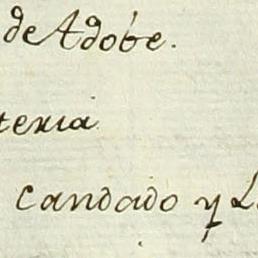 de Adóbe.
teria
candado y L